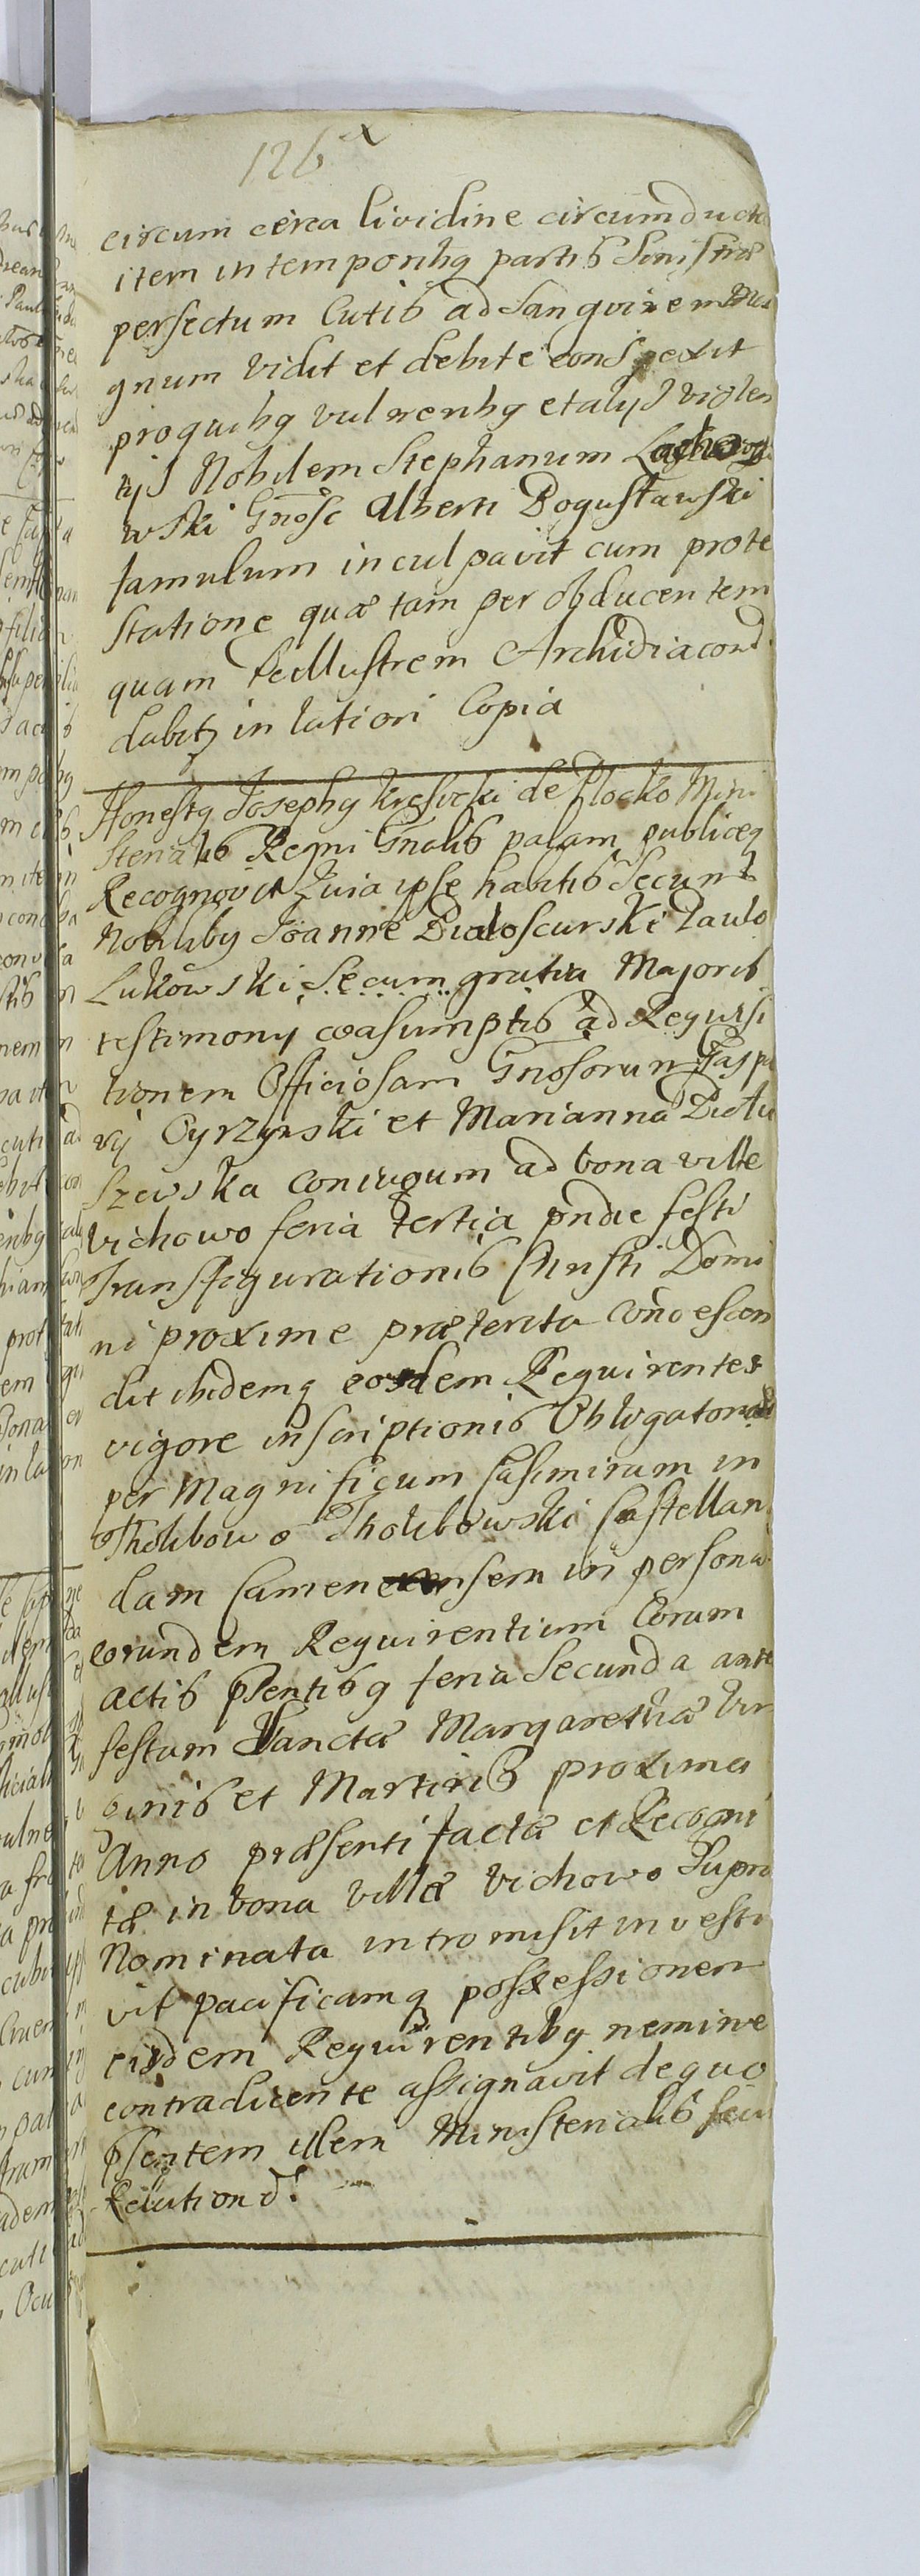 126
circum circa lividine circumducta
item in temporibq partis sinistræ
perfectum Cutis ad Sangvinem Ma
gnum vidit et debite conspexit
proquibq vulneribq et alijs violen
tijs Nobilem Stephanum
wski Gnosc Alberti Bogusławski
famulum inculpavit cum prote
statione quæ tam per obducentem
quam Peillustrem Archidiacond
dabitz in latiori Copia
Honestq Josephq Krosicki de Plocko Mini
sterialis Regni Gnalis palam publiceq
Recognovit Quia ipse habitis Secum
Nobilibq Joanne Białoscurski Paulo
Lukowski Secum gratia Majoris
testimony coasumptis ad Requisi
tionem Officiosam Gnosorum Caspa
rij Cyrzyński et Marianna Piotu
szewska Coniugum ad bona villæ
Vichowo feria tertia pndie festi
Transfigurationis Christi Domi
ni proxime præterita condescen
dit ibidemq eosdem Requirentes
vigore inscriptionis Obligatoriæ
per Magnificum Casimirum in
Tholibowo Tholibowski Castellan
dam Camenensem in persona
eorundem Requirentium Coram
actis psentibq feria Secunda ante
festum Sanctæ Margarethæ Vir
ginis et Martiris proxima
Anno præsenti factæ et Recogni
tæ in bona villæ Vichowo Supra
Nominata intromisit investi
vit pacificamq possessionem
eisdem Requirentibq nemine
contradicente assignavit de quo
psentem idem Ministerialis fecit
Relationē.